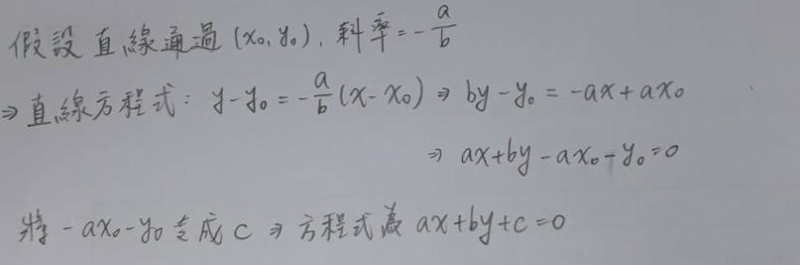 假設直線通過(x₀, y₀), 斜率=-a/b
⇒直線方程式: y-y₀=-a/b(x-x₀) ⇒ by-y₀=-ax+ax₀
⇒ ax+by-ax₀-y₀=0
將-ax₀-y₀寫成c ⇒ 方程式為 ax+by+c=0